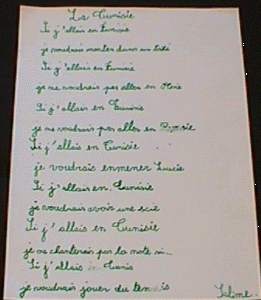 La Tunisie
Si j'allais en Tunisie
je voudrais monter dans un
Si j'allais en Tunisie
je ne voudrais pas aller en Asie
Si j'allais en Tunisie
je ne voudrais pas aller en Russie
Si j'allais en Tunisie
je voudrais emmener Lucie
Si j'allais en Tunisie
je voudrais avoir une scie
Si j'allais en Tunisie
je ne chanterais pas la note si...
Si j'allais Tunis
je voudrais jouer du tennis